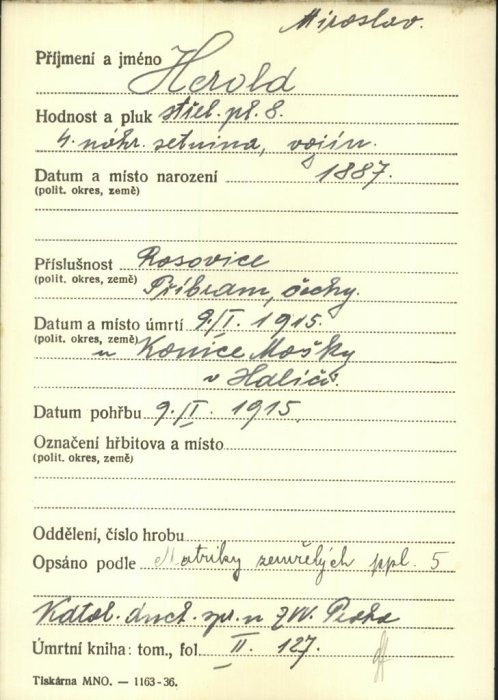 Miroslav.
Příjmení a jméno Herold
Hodnost a pluk střel. pl. 8.
4. náhr. setnina, vojín.
Datum a místo narození 1887.
(polit. okres, země)
Příslušnost Rosovice
(polit. okres, země) Příbram, Čechy.
Datum a místo úmrtí 9./I. 1915.
(polit. okres, země) u Konice Mošky
v Haliči.
Datum pohřbu 9./I. 1915.
Označení hřbitova a místo
(polit. okres, země)
Oddělení, číslo hrobu
Opsáno podle Matriky zemřelých ppl. 5
Katol. duch. spr. u ZVV. Praha
Úmrtní kniha: tom., fol. II. 127.
Tiskárna MNO. — 1163-36.